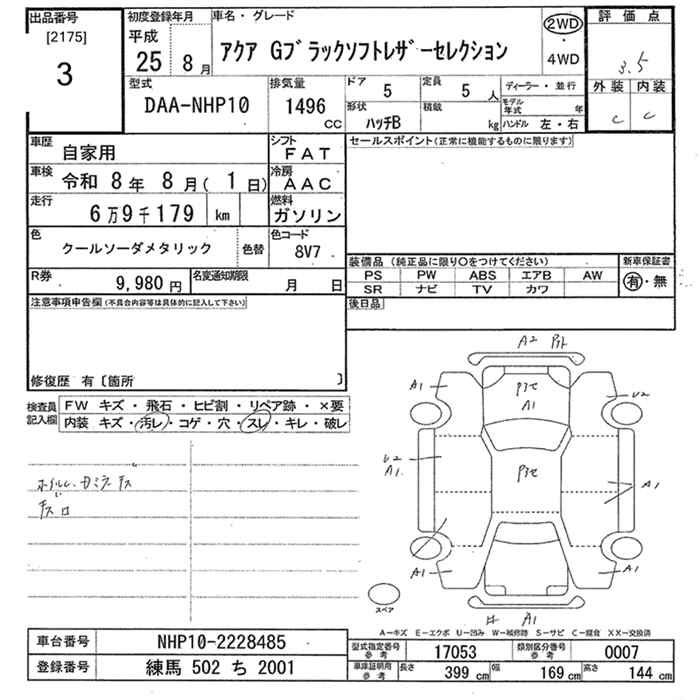 出品番号
[2175]
3
初度登録年月
平成
25 8月
車名・グレード
アクア Gブラックソフトレザーセレクション
2WD
・
4WD
評価点
3.5
外装 内装
C C
型式
DAA-NHP10
排気量
1496
CC
ドア
5
定員
5 人
形状
ハッチB
積載
kg
ディーラー・並行
モデル年式 年
ハンドル 左・右
車歴
自家用
シフト
FAT
車検
令和 8年 8月( 1日)
冷房
AAC
走行
6万9千179 km
燃料
ガソリン
色
クールソーダメタリック
色替
色コード
8V7
R券
9,980 円
名変通知期限
月 日
セールスポイント(正常に機能するものに限ります)
装備品 (純正品に限り〇をつけてください)
PS PW ABS エアB AW
SR ナビ TV カワ
新車保証書
有・無
後日品
注意事項申告欄(不具合内容等は具体的に記入して下さい)
修復歴 有〔箇所 〕
検査員記入欄
FW キズ・飛石・ヒビ割・リペア跡・×要
内装 キズ・汚レ・コゲ・穴・スレ・キレ・破レ
A2
A1
A1
U2
U2
A1
A1
A1
A1
A1
スペア
A－キズ E－エクボ U－凹み W－補修跡 S－サビ C－腐食 XX－交換済
車台番号
NHP10-2228485
登録番号
練馬 502 ち 2001
型式指定番号
参考
17053
類別区分番号
参考
0007
車庫証明用
参考
長さ
399 cm
幅
169 cm
高さ
144 cm